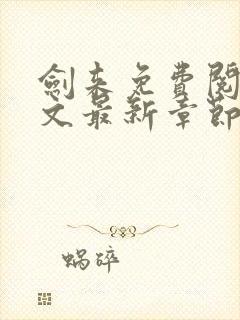 劍来免費閱
文最新章節
蝸碎